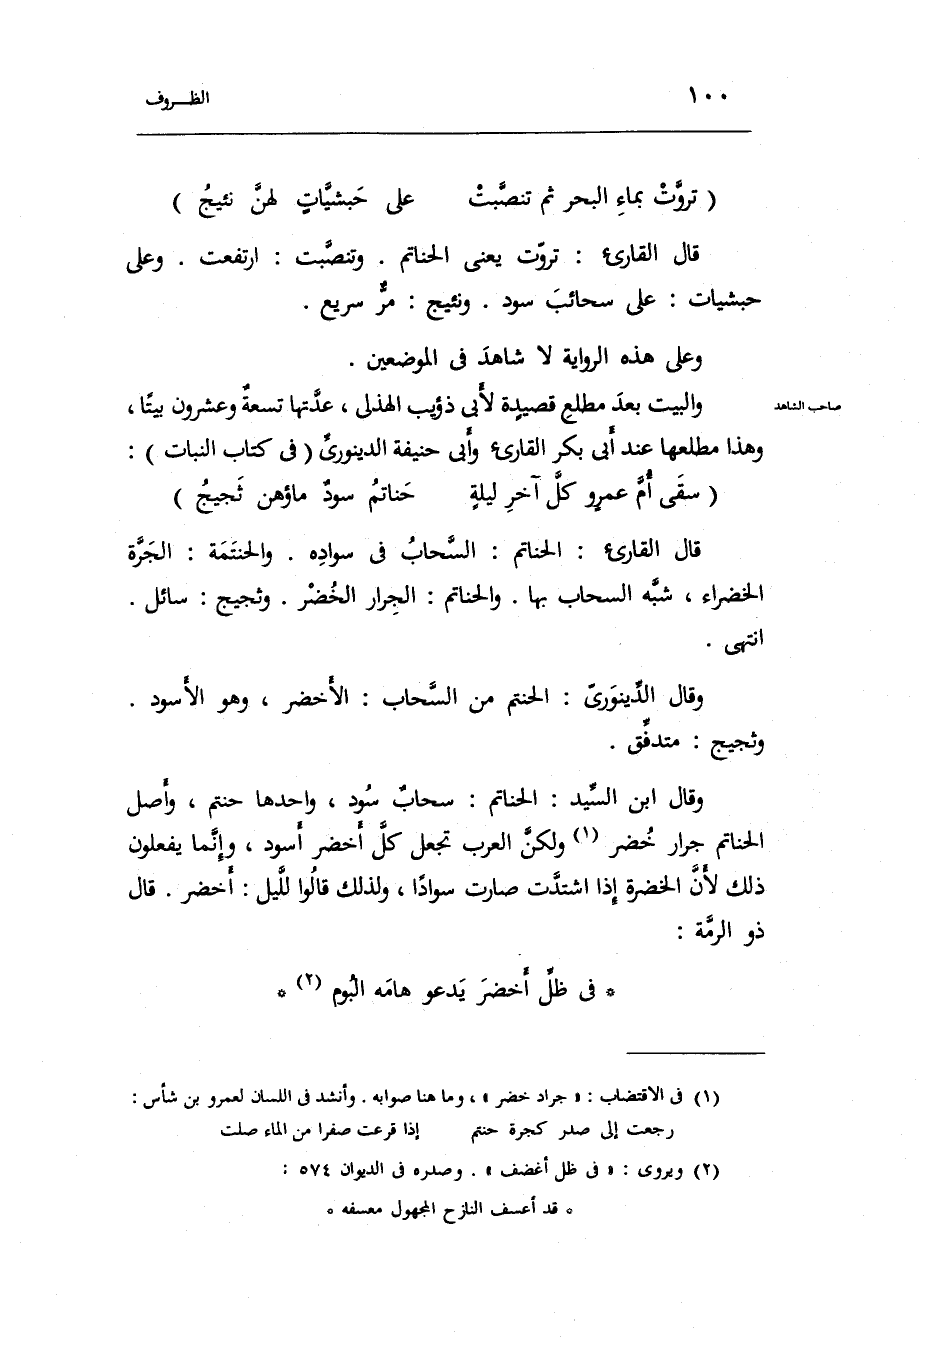 ١٠٠ الظـروف
( تروَّتْ بماءِ البحر ثم تنصَّبتْ على حَبشيَّاتٍ لهنَّ نئيجُ )
قال القارئ : تروّت يعنى الحناتم . وتنصَّبت : ارتفعت . وعلى
حبشيات : على سحائبَ سود . ونئيج : مرٌّ سريع .
وعلى هذه الرواية لا شاهدَ فى الموضعين .
صاحب الشاهد
والبيت بعدَ مطلعِ قصيدة لأَبى ذؤيب الهذلى ، عدَّتها تسعةٌ وعشرون بيتًا ،
وهذا مطلعها عند أَبى بكر القارئ وأَبى حنيفة الدينورىِّ ( فى كتاب النبات ) :
( سقَى أُمَّ عمرٍو كلَّ آخرِ ليلةٍ حَناتمُ سودٌ ماؤهن ثَجيجُ )
قال القارئ : الحناتم : السَّحابُ فى سوادِه . والحنتَمَة : الجَرَّة
الخضراء ، شبَّه السحاب بها . والحناتم : الجِرار الخُضْر . وثجيج : سائل .
انتهى .
وقال الدِّينوَرىّ : الحنتم من السَّحاب : الأَخضر ، وهو الأَسود .
وثجيج : متدفِّق .
وقال ابن السِّيد : الحناتم : سحابٌ سُود ، واحدها حنتم ، وأَصل
الحناتم جرار خُضر (١) ولكنَّ العرب تجعل كلَّ أَخضر أَسود ، وإِنَّما يفعلون
ذلك لأَنَّ الخضرة إِذا اشتدَّت صارت سوادًا ، ولذلك قالُوا للَّيل : أَخضر . قال
ذو الرمَّة :
* فى ظلِّ أَخضرَ يَدعو هامَه البُوم (٢) *
(١) فى الاقتضاب : « جراد خضر » ، وما هنا صوابه . وأنشد فى اللسان لعمرو بن شأس :
رجعت إلى صدر كجرة حنتم إذا قرعت صفرا من الماء صلت
(٢) ويروى : « فى ظل أغضف » . وصدره فى الديوان ٥٧٤ :
* قد أعسف النازح المجهول معسفه *